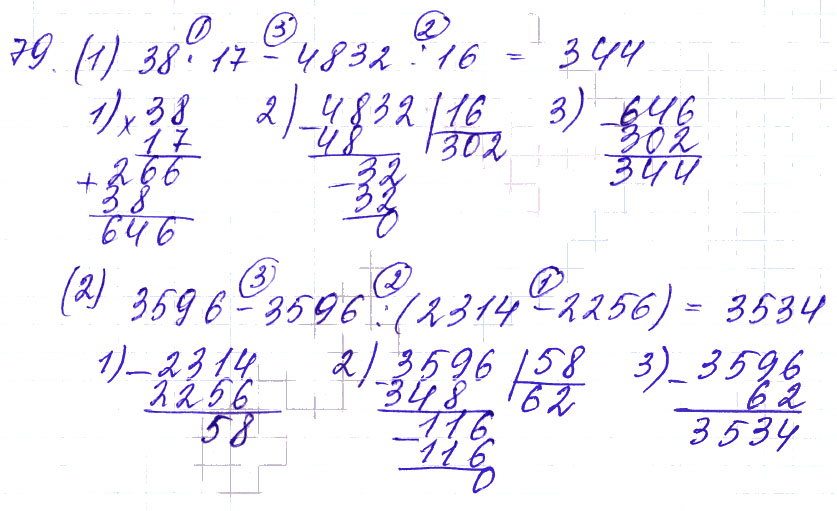 ① ③ ②
79. (1) 38 · 17 - 4832 : 16 = 344
1) × 38 2) - 4832 | 16 3) - 646
17 48 302 302
+ 266 - 32 344
38 32
646 0
③ ② ①
(2) 3596 - 3596 : (2314 - 2256) = 3534
1) - 2314 2) - 3596 | 58 3) - 3596
2256 348 62 62
58 - 116 3534
116
0